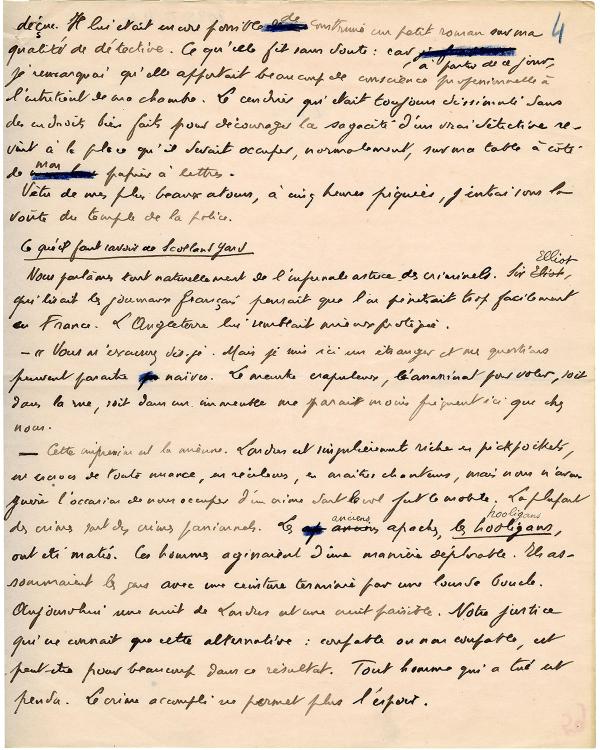 4
déçue. Il lui était encore possible de construire un petit roman sur ma
qualité de détective. Ce qu'elle fit sans doute : car, à partir de ce jour,
je remarquai qu'elle apportait beaucoup de conscience professionnelle à
l'entretien de ma chambre. Le cendrier qu'était toujours dissimulé dans
des endroits bien faits pour décourager la sagacité d'un vrai détective re-
vint à la place qu'il devait occuper, normalement, sur ma table à côté
de mon papier à lettres.
Vêtu de mes plus beaux atours, à cinq heures piquées, j'entrai sous la
voûte du temple de la police.
Ce qu'il faut savoir de Scotland Yard
Nous parlâmes tout naturellement de l'infernale astuce des criminels. Sir Eliot, Elliot
qui lisait les journaux français pensait que l'on pénétrait trop facilement
en France. L'Angleterre lui semblait mieux protégée.
— « Vous m'excuserez dis-je. Mais je suis ici un étranger et mes questions
peuvent paraître naïves. Le meurtre crapuleux, l'assassinat pour voler, soit
dans la rue, soit dans un immeuble me paraît moins fréquent ici que chez
nous.
— Cette impression est la mienne. Londres est singulièrement riche en pickpockets,
en escrocs de toute nuance, en recéleurs, en maîtres chanteurs, mais nous n'avons
guère l'occasion de nous occuper d'un crime dont le vol fut le mobile. La plupart
des crimes sont des crimes passionnels. Les anciens apaches, les hooligans, hooligans
ont été matés. Ces hommes agissaient d'une manière déplorable. Ils as-
sommaient les gens avec une ceinture terminée par une lourde boucle.
Aujourd'hui une nuit de Londres est une nuit paisible. Notre justice
qui ne connaît que cette alternative : coupable ou non coupable, est
peut-être pour beaucoup dans ce résultat. Tout homme qui a tué est
pendu. Le crime accompli ne permet plus l'espoir.